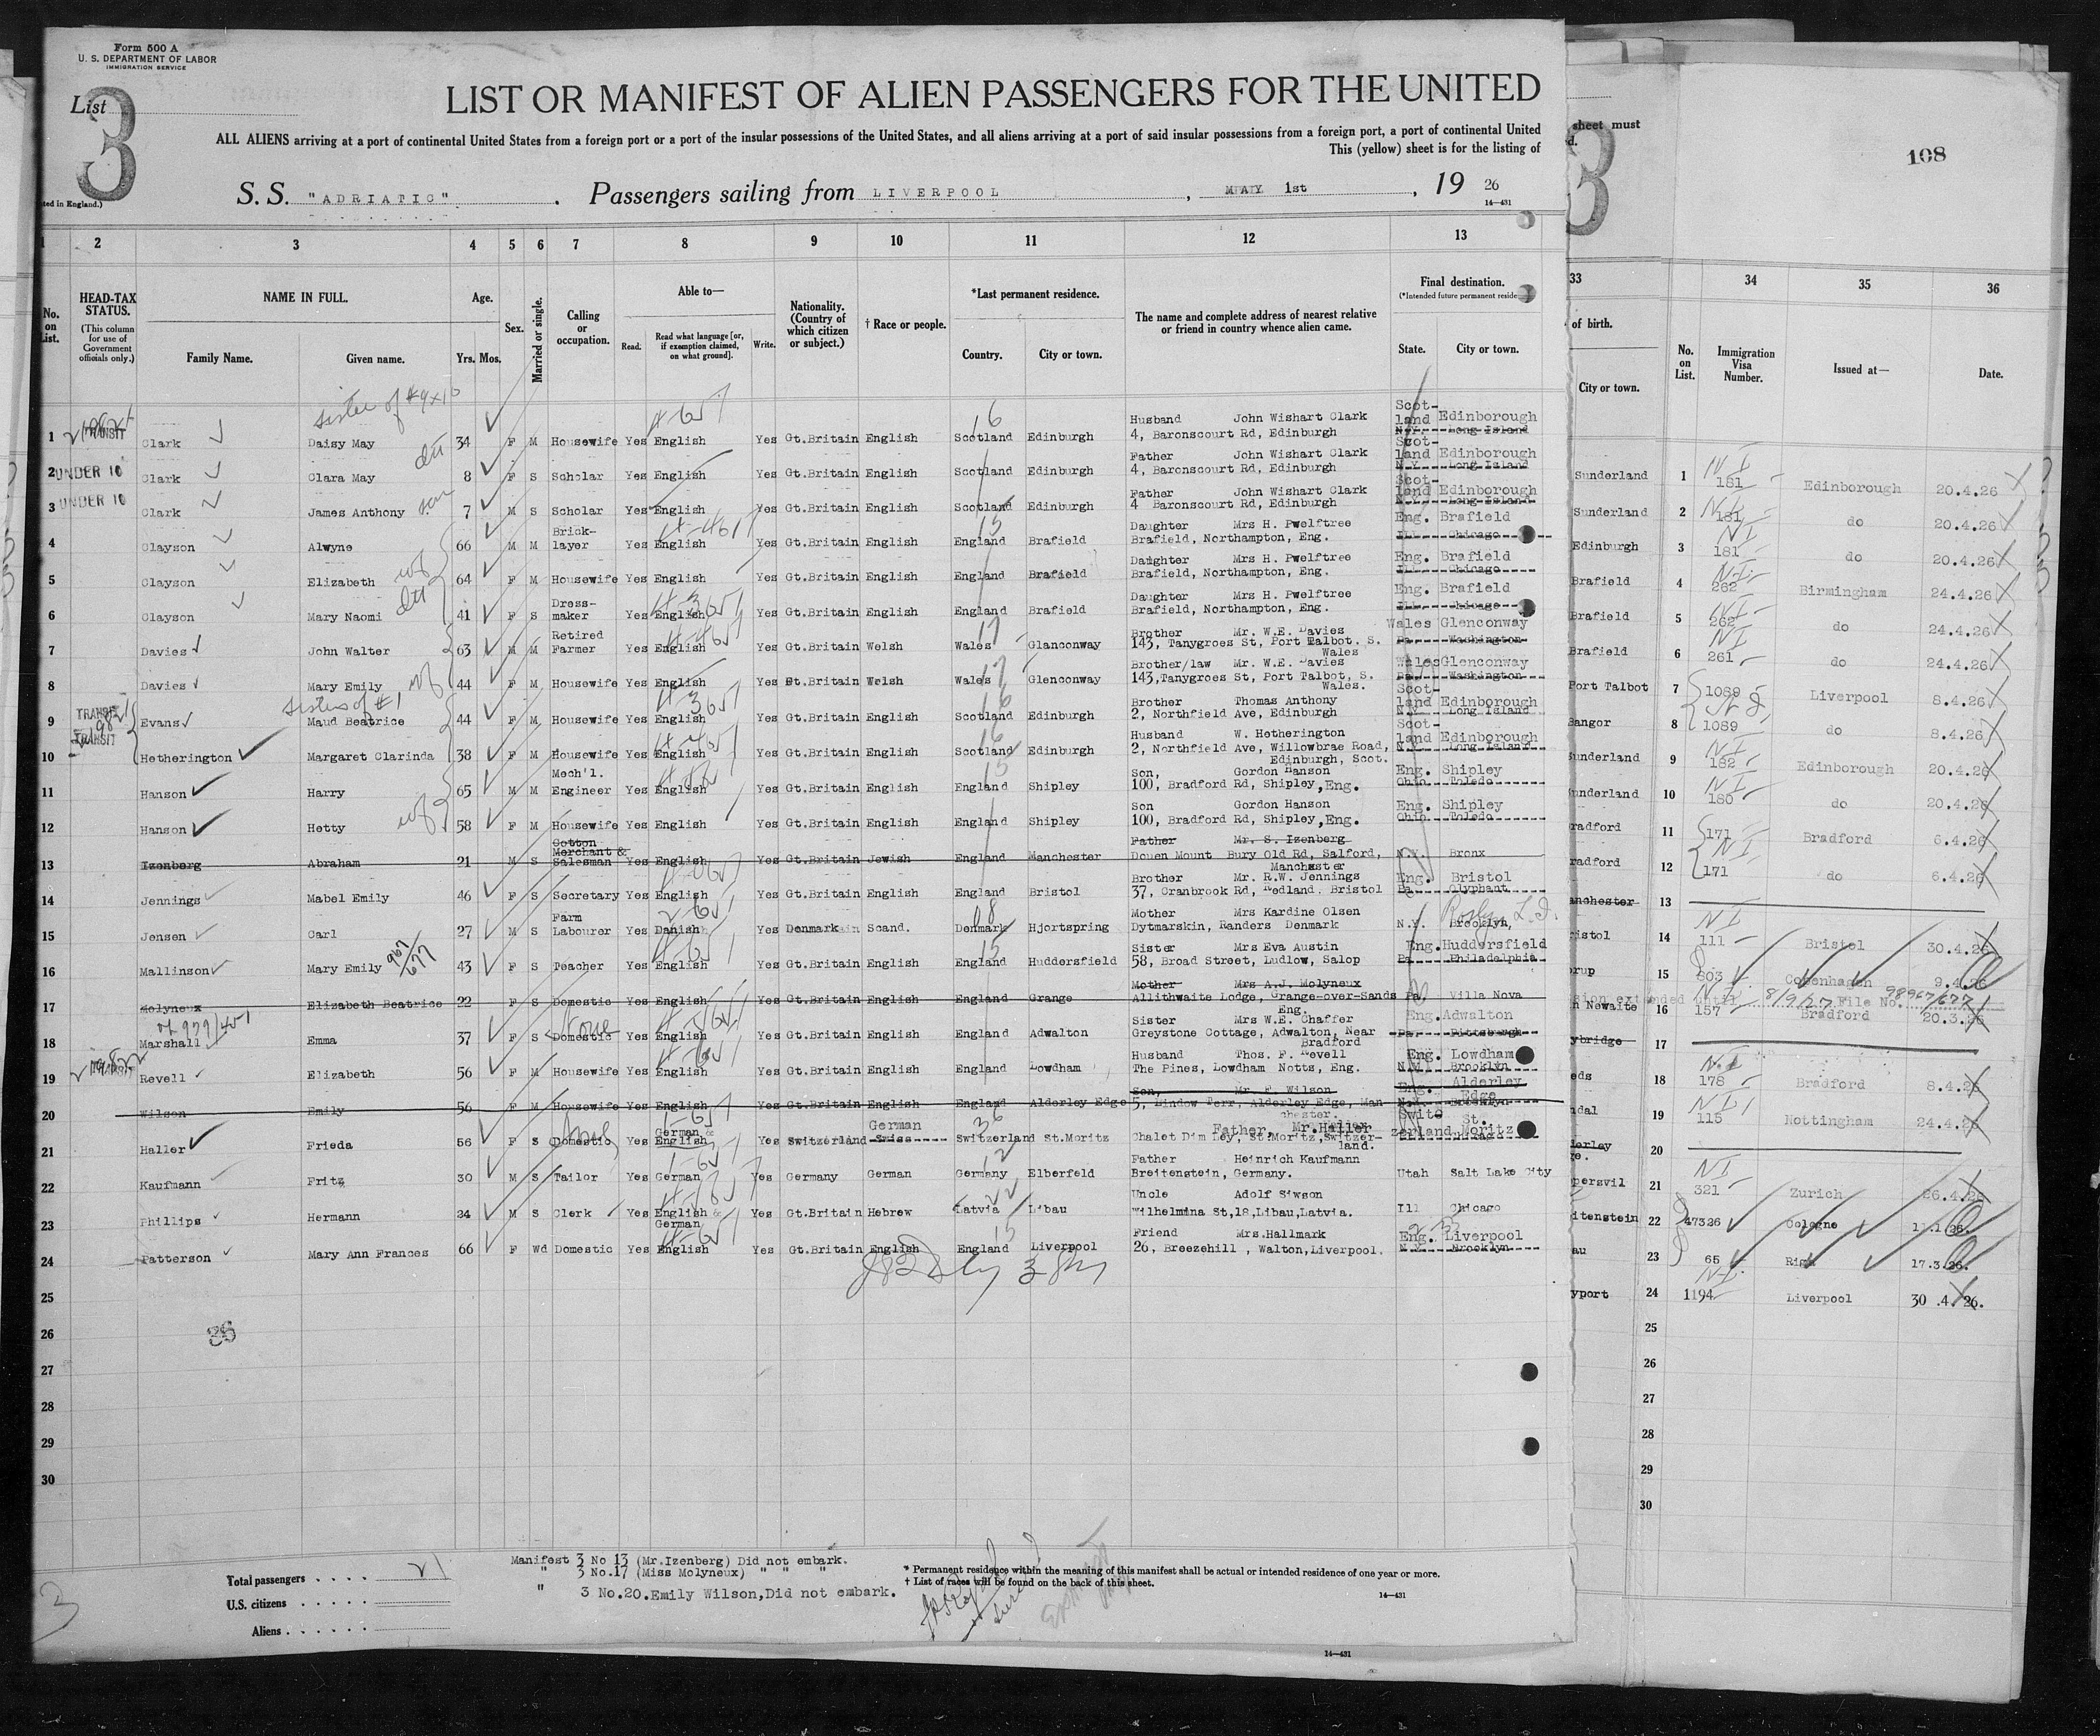 Form 500 A
U. S. DEPARTMENT OF LABOR
IMMIGRATION SERVICE
List
3
LIST OR MANIFEST OF ALIEN PASSENGERS FOR THE UNITED
ALL ALIENS arriving at a port of continental United States from a foreign port or a port of the insular possessions of the United States, and all aliens arriving at a port of said insular possessions from a foreign port, a port of continental United
This (yellow) sheet is for the listing of
S. S. "ADRIATIC" . Passengers sailing from LIVERPOOL , MAY 1st , 19 26
14—431
sheet must
108
1 2 3 4 5 6 7 8 9 10 11 12 13
33 34 35 36
No. on List.
HEAD-TAX STATUS.
(This column for use of Government officials only.)
NAME IN FULL.
Family Name. Given name.
Age.
Yrs. Mos.
Sex.
Married or single.
Calling or occupation.
Able to—
Read. Read what language [or, if exemption claimed, on what ground]. Write.
Nationality. (Country of which citizen or subject.)
† Race or people.
*Last permanent residence.
Country. City or town.
The name and complete address of nearest relative or friend in country whence alien came.
Final destination.
(*Intended future permanent reside
State. City or town.
of birth.
City or town.
No. on List.
Immigration Visa Number.
Issued at—
Date.
sister of #9x10
1 TRANSIT Clark Daisy May 34 F M Housewife Yes English Yes Gt.Britain English Scotland Edinburgh Husband John Wishart Clark 4, Baronscourt Rd, Edinburgh Scotland Edinborough N.Y. Long Island
2 UNDER 16 Clark Clara May 8 F S Scholar Yes English Yes Gt.Britain English Scotland Edinburgh Father John Wishart Clark 4, Baronscourt Rd, Edinburgh Scotland Edinborough N.Y. Long Island
3 UNDER 16 Clark James Anthony son 7 M S Scholar Yes English Yes Gt.Britain English Scotland Edinburgh Father John Wishart Clark 4 Baronscourt Rd, Edinburgh Scotland Edinborough N.Y. Long Island
4 Clayson Alwyne 66 M M Brick-layer Yes English Yes Gt.Britain English England Brafield Daughter Mrs H. Pwelftree Brafield, Northampton, Eng. Eng. Brafield Ill. Chicago
5 Clayson Elizabeth wf 64 F M Housewife Yes English Yes Gt.Britain English England Brafield Daughter Mrs H. Pwelftree Brafield, Northampton, Eng. Eng. Brafield Ill. Chicago
6 Clayson Mary Naomi 41 F S Dress-maker Yes English Yes Gt.Britain English England Brafield Daughter Mrs H. Pwelftree Brafield, Northampton, Eng. Eng. Brafield Ill. Chicago
7 Davies John Walter 63 M M Retired Farmer Yes English Yes Gt.Britain Welsh Wales Glanconway Brother Mr. W.E. Davies 143, Tanygroes St, Port Talbot. S. Wales Wales Glenconway Pa. Washington
8 Davies Mary Emily wf 44 F M Housewife Yes English Yes Gt.Britain Welsh Wales Glenconway Brother/law Mr. W.E. Davies 143,Tanygroes St, Port Talbot, S. Wales. Wales Glenconway Pa. Washington
Sisters of #1
9 TRANSIT Evans Maud Beatrice 44 F M Housewife Yes English Yes Gt.Britain English Scotland Edinburgh Brother Thomas Anthony 2, Northfield Ave, Edinburgh Scotland Edinborough N.Y. Long Island
10 TRANSIT Hetherington Margaret Clarinda 38 F M Housewife Yes English Yes Gt.Britain English Scotland Edinburgh Husband W. Hetherington 2, Northfield Ave, Willowbrae Road, Edinburgh, Scot. Scotland Edinborough N.Y. Long Island
11 Hanson Harry 65 M M Mech'l. Engineer Yes English Yes Gt.Britain English England Shipley Son, Gordon Hanson 100, Bradford Rd, Shipley,Eng. Eng. Shipley Ohio Toledo
12 Hanson Hetty wf 58 F M Housewife Yes English Yes Gt.Britain English England Shipley Son Gordon Hanson 100, Bradford Rd, Shipley,Eng. Eng. Shipley Ohio Toledo
13 Izenberg Abraham 21 M S Cotton Merchant & Salesman Yes English Yes Gt.Britain Jewish England Manchester Father Mr. S. Izenberg Douen Mount Bury Old Rd, Salford, Manchester N.Y. Bronx
14 Jennings Mabel Emily 46 F S Secretary Yes English Yes Gt.Britain English England Bristol Brother Mr. R.W. Jennings 37, Cranbrook Rd, Redland. Bristol Eng. Bristol Pa. Olyphant
15 Jensen Carl 27 M S Farm Labourer Yes Danish Yes Denmark Scand. Denmark Hjortspring Mother Mrs Kardine Olsen Dytmarskin, Randers Denmark N.Y. Brooklyn,
16 Mallinson Mary Emily 43 F S Teacher Yes English Yes Gt.Britain English England Huddersfield Sister Mrs Eva Austin 58, Broad Street, Ludlow, Salop Eng. Huddersfield Pa. Philadelphia
17 Molyneux Elizabeth Beatrice 22 F S Domestic Yes English Yes Gt.Britain English England Grange Mother Mrs A.J. Molyneux Allithwaite Lodge, Grange-over-Sands Eng. Pa. Villa Nova
18 Marshall Emma 37 F S Domestic None Yes English Yes Gt.Britain English England Adwalton Sister Mrs W.E. Chaffer Greystone Cottage, Adwalton, Near Bradford Eng. Adwalton Pa. Pittsburgh
19 Revell Elizabeth 56 F M Housewife Yes English Yes Gt.Britain English England Lowdham Husband Thos. F. Revell The Pines, Lowdham Notts, Eng. Eng. Lowdham N.Y. Brooklyn
20 Wilson Emily 56 F M Housewife Yes English Yes Gt.Britain English England Alderley Edge Son, Mr. F. Wilson 5, Lindow Terr, Alderley Edge, Manchester. Eng. Alderley Edge N.Y. Brooklyn
21 Haller Frieda 56 F S Domestic Yes German & English Yes Switzerland German Swiss Switzerland St.Moritz Father, Mr.Haller Chalet Dim Ley, St.Moritz,Switzerland. Switzerland St. Moritz
22 Kaufmann Fritz 30 M S Tailor Yes German Yes Germany German Germany Elberfeld Father Heinrich Kaufmann Breitenstein, Germany. Utah Salt Lake City
23 Phillips Hermann 24 M S Clerk Yes English & German Yes Gt.Britain Hebrew Latvia Libau Uncle Adolf Siwson Wilhelmina St,18,Libau,Latvia. Ill Chicago
24 Patterson Mary Ann Frances 66 F Wd Domestic Yes English Yes Gt.Britain English England Liverpool Friend Mrs.Hallmark 26, Breezehill , Walton,Liverpool. Eng. Liverpool N.Y. Brooklyn
25
26
27
28
29
30
Sunderland 1 NI 181 Edinborough 20.4.26
Sunderland 2 NI 181 do 20.4.26
Edinburgh 3 NI 181 do 20.4.26
Brafield 4 NI 262 Birmingham 24.4.26
Brafield 5 NI 262 do 24.4.26
Brafield 6 NI 261 do 24.4.26
Port Talbot 7 1089 Liverpool 8.4.26
Bangor 8 1089 do 8.4.26
Sunderland 9 NI 182 Edinborough 20.4.26
Sunderland 10 NI 180 do 20.4.26
radford 11 171 Bradford 6.4.26
radford 12 NI 171 do 6.4.26
anchester 13
ristol 14 NI 111 Bristol 30.4.26
rup 15 803 Copenhagen 9.4.26
sion extended until 8/9/27 File No. 98967/677
n Newaite 16 157 Bradford 20.3.26
ybridge 17
eds 18 NI 178 Bradford 8.4.26
ndal 19 NI 115 Nottingham 24.4.26
derley ge. 20
persvil 21 NI 321 Zurich 26.4.26
itenstein 22 47326 Cologne 11.1.26.
au 23 65 Riga 17.3.26.
yport 24 NI 1194 Liverpool 30 .4. 26.
25
26
27
28
29
30
Total passengers . . . . 21
U.S. citizens . . . . .
Aliens . . . . . .
Manifest 3 No 13 (Mr.Izenberg) Did not embark.
" 3 No.17 (Miss Molyneux) " " "
" 3 No.20.Emily Wilson,Did not embark.
* Permanent residence within the meaning of this manifest shall be actual or intended residence of one year or more.
† List of races will be found on the back of this sheet.
14—431
3
14—431